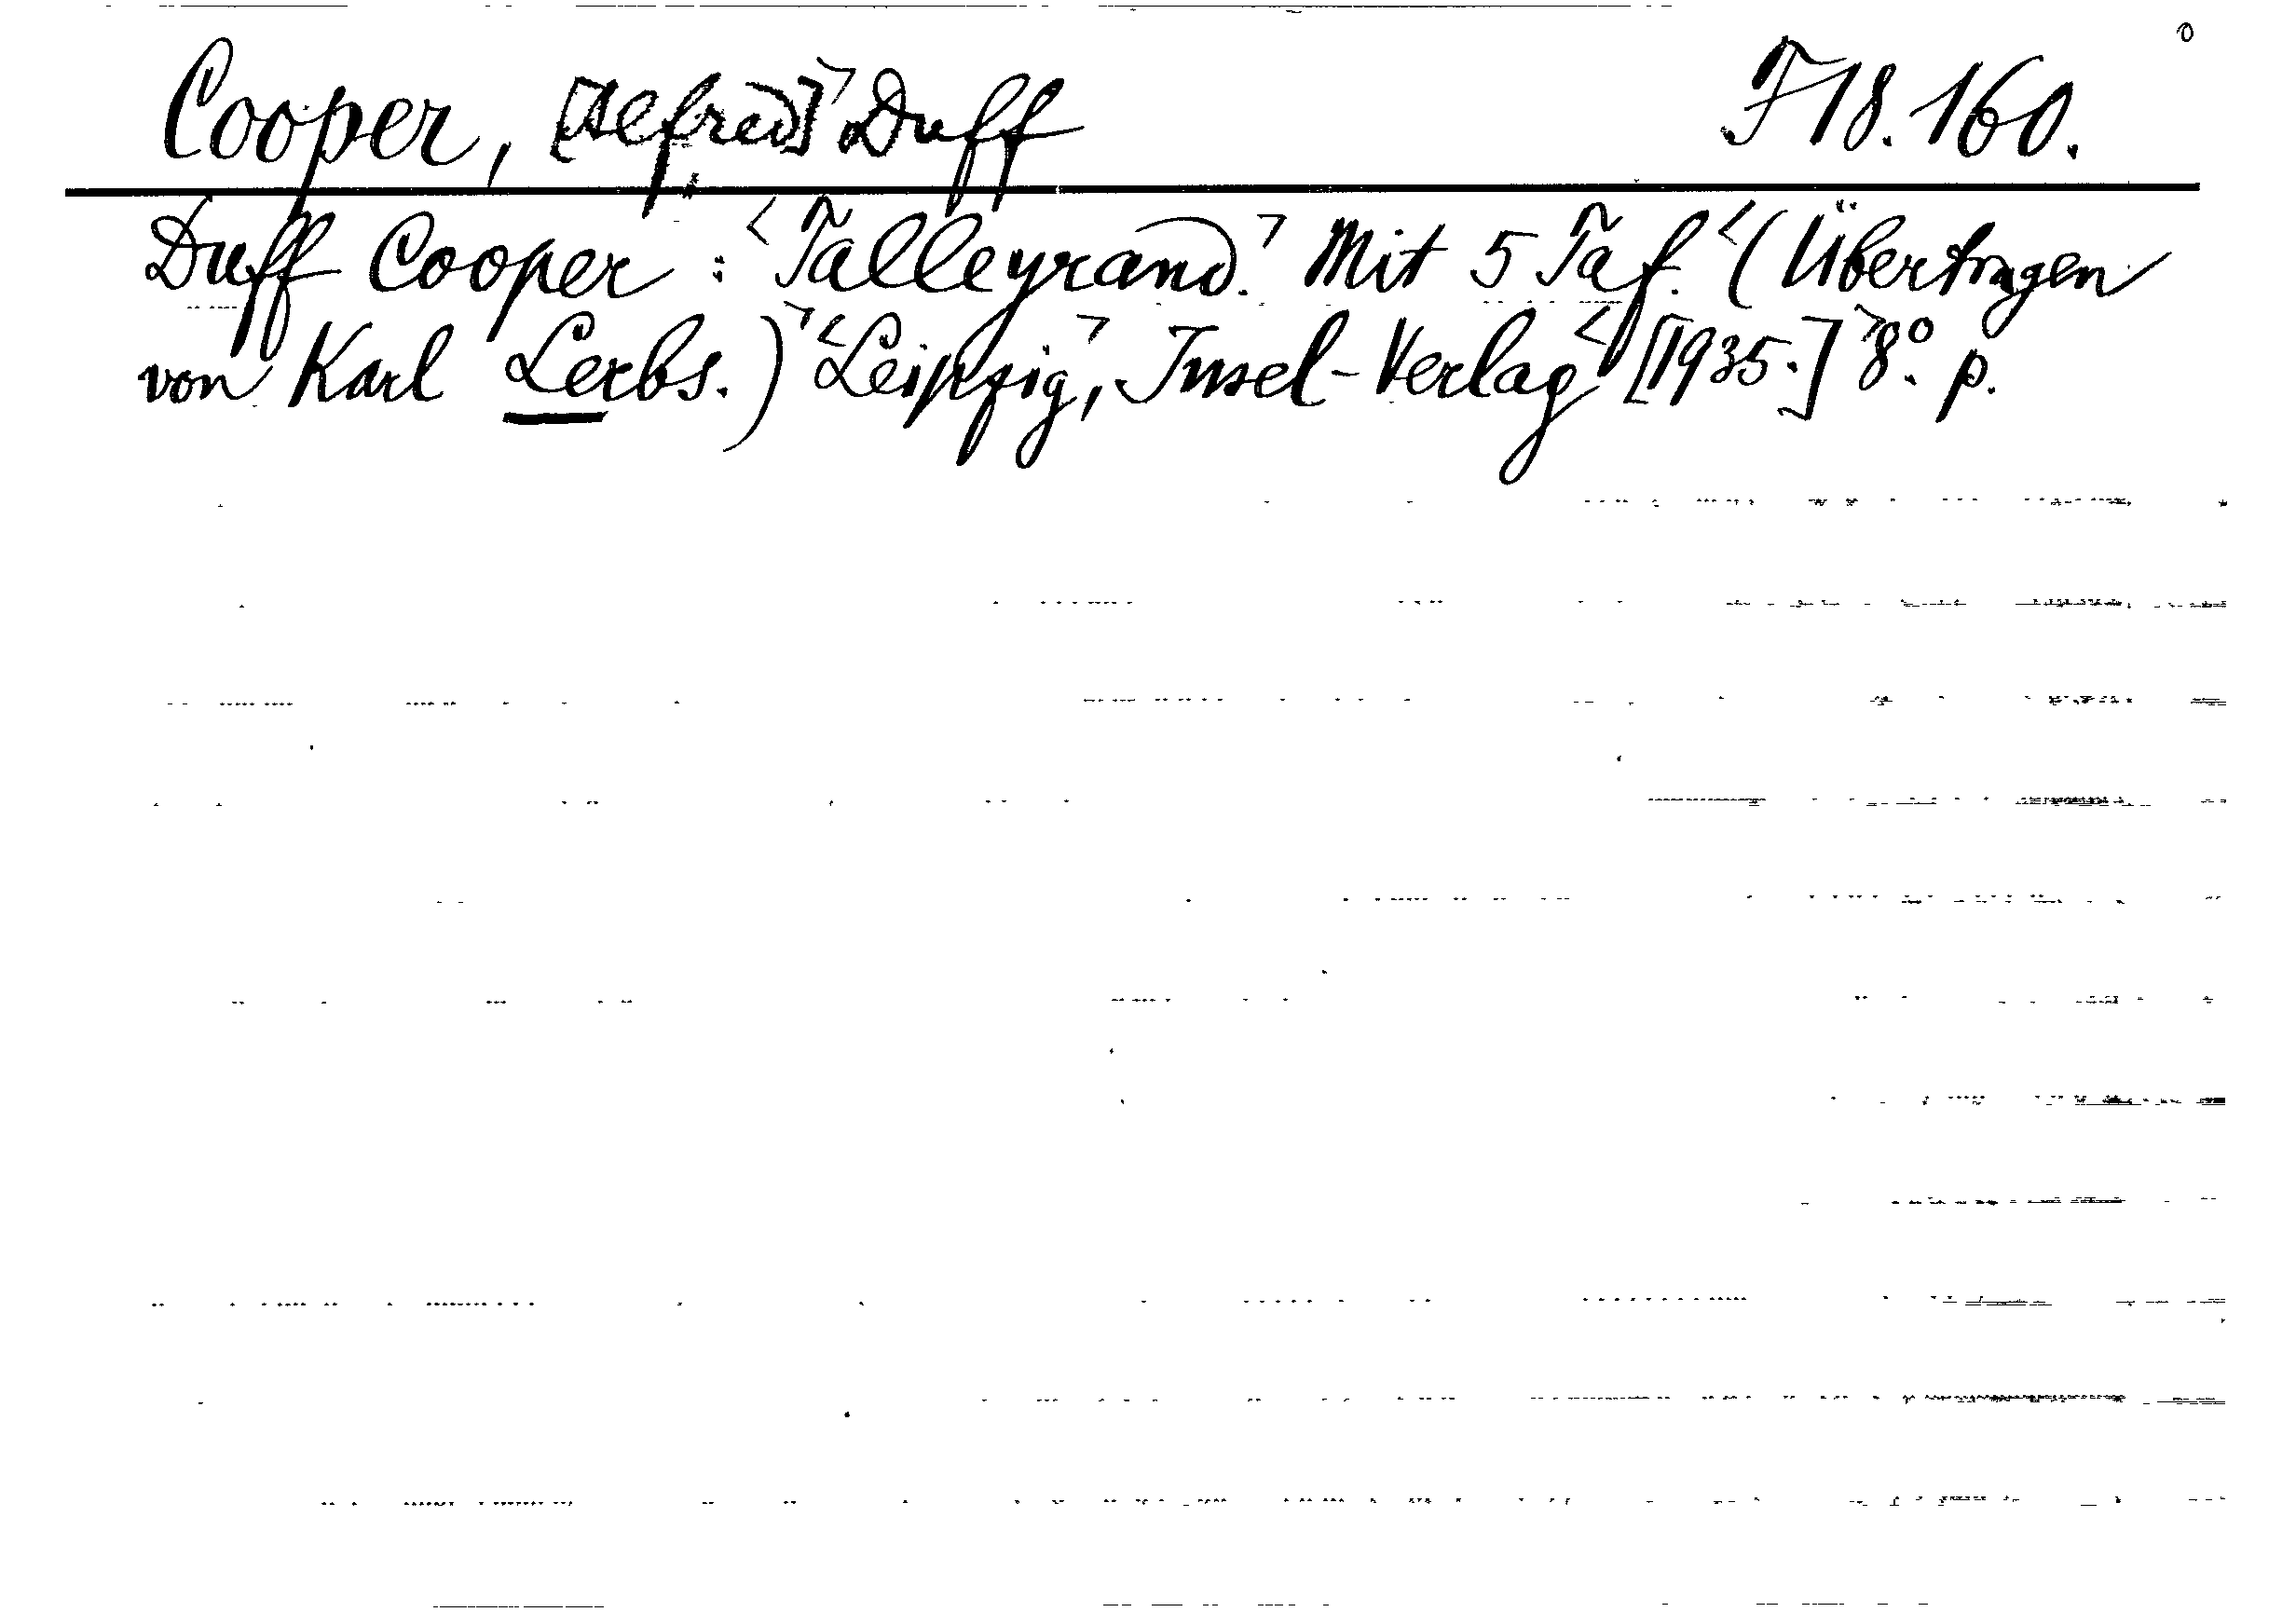 Cooper, [Alfred] Duff F 18. 160.
Duff Cooper: Talleyrand. Mit 5 Taf. (Übertragen
von Karl Lerbs.) Leipzig, Insel-Verlag [1935.] 8°. p.